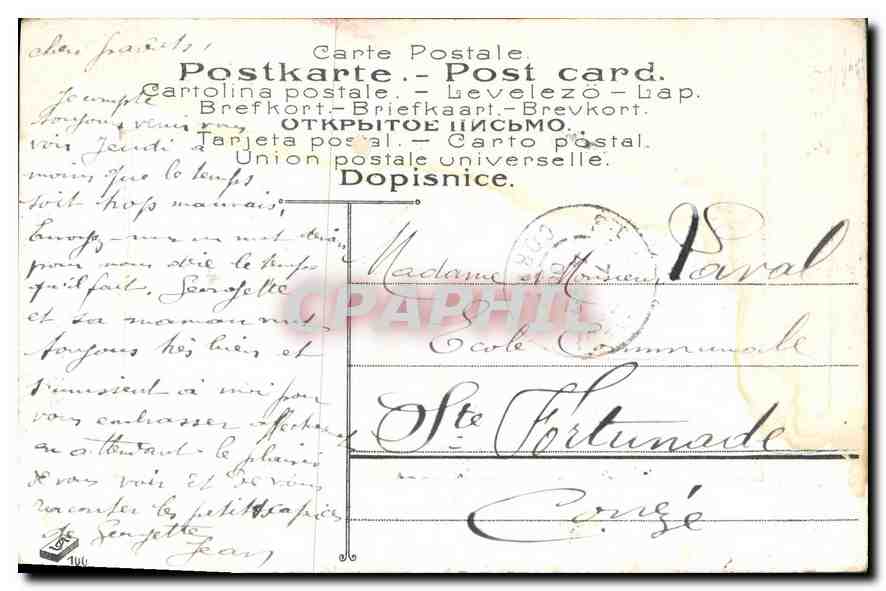 chers parents,
Carte Postale.
Postkarte. - Post card.
Cartolina postale. - Levelező - Lap.
Brefkort. - Briefkaart. - Brevkort.
ОТКРЫТОЕ ПИСЬМО.
Tarjeta postal. - Carto postal.
Union postale universelle.
Dopisnice.
Je compte
toujours venir vous
voir Jeudi à
moins que le temps
soit trop mauvais.
Envoyez-moi un mot
pour nous dire le temps
qu'il fait. Georgette
et sa maman vont
toujours très bien et
s'unissent à moi pour
vous embrasser
en attendant le plaisir
de vous voir et de vous
raconter les petits caprices
de Georgette
Jean
144
Madame et Monsieur Paval
Ecole Communale
Ste Fortunade
Corrèze
CPAPHIL
COR